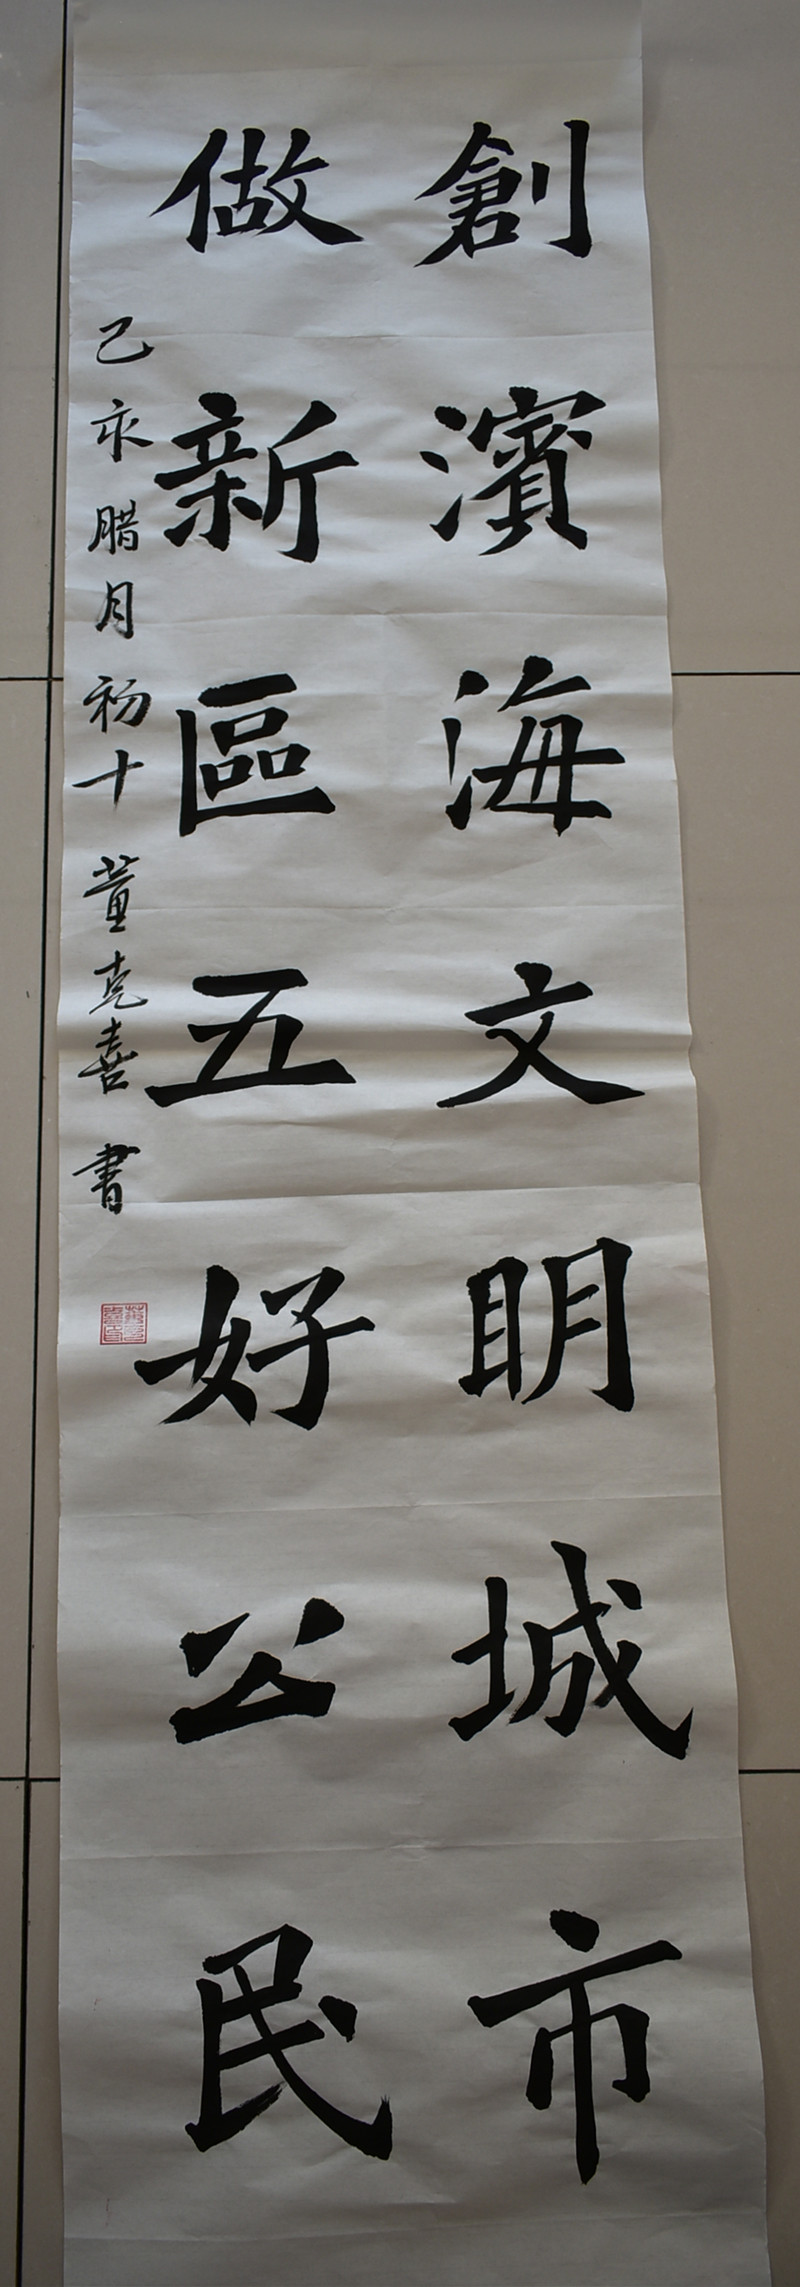 創濱海文明城市
做新區五好公民
己亥腊月初十董克喜書